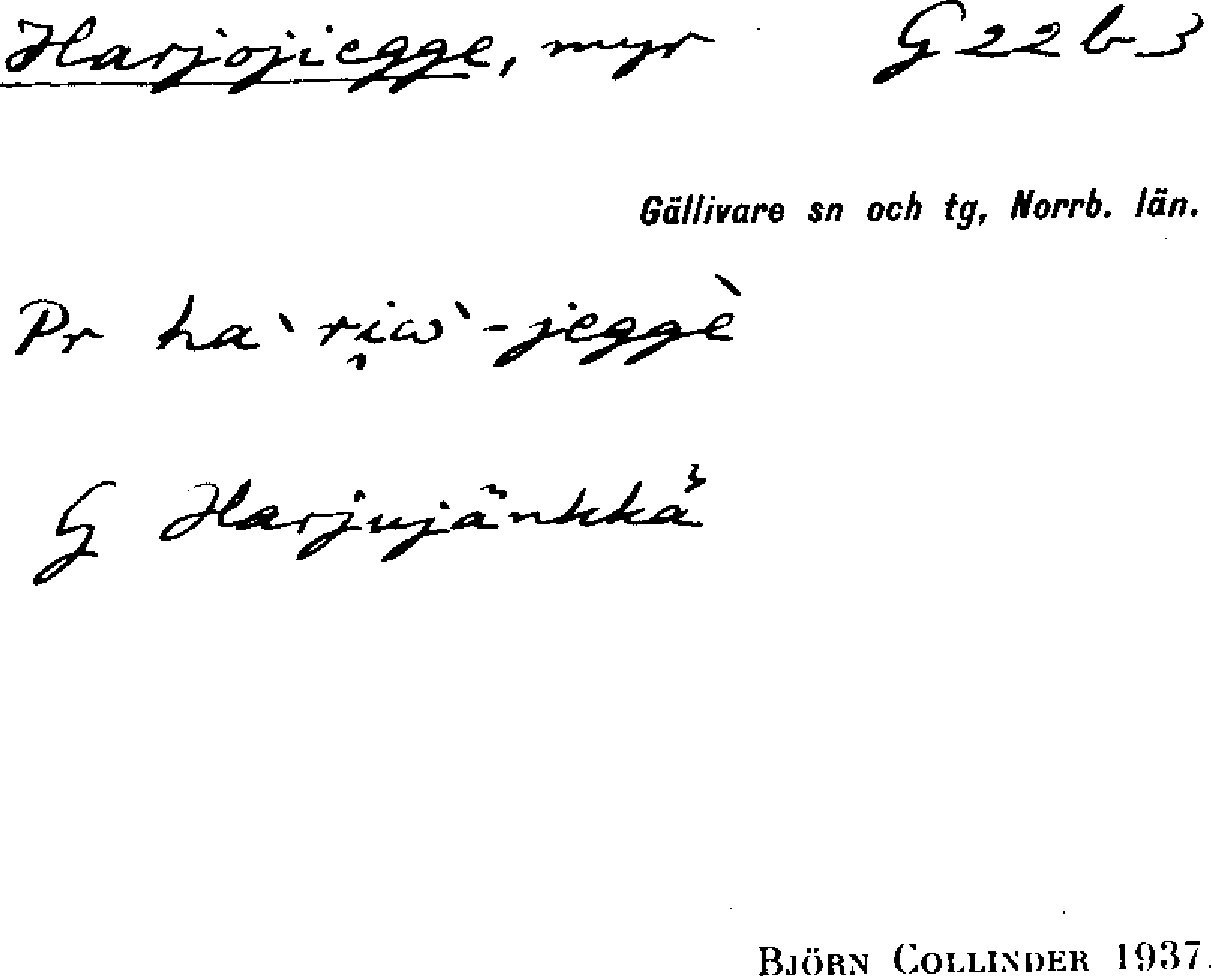 Harjojiegge, myr G22b3
Gällivare sn och tg, Norrb. län.
Pr haˋri̯wˋ-jeggè
G Harjujänkkä
BJÖRN COLLINDER 1937.